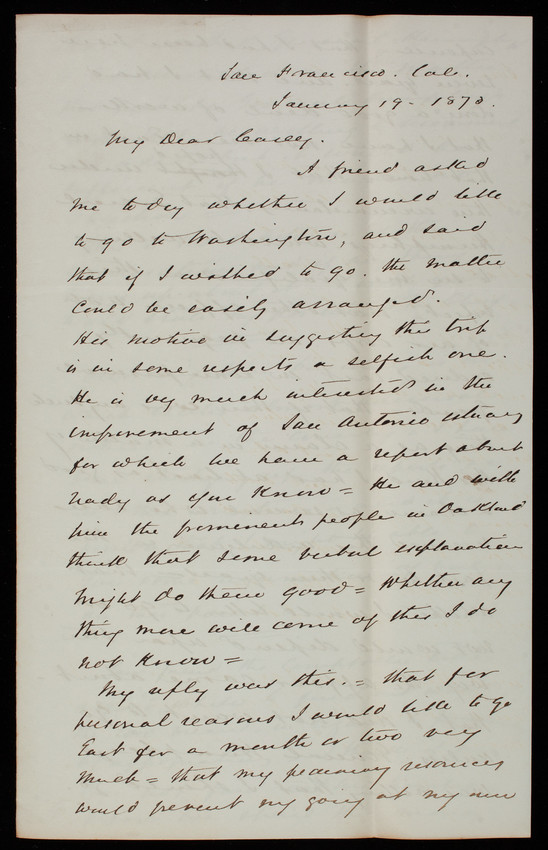 San Francisco. Cal.
January 19 - 1873.
My Dear Casey.
A friend asked
me to day whether I would like
to go to Washington, and said
that if I wished to go. the matter
could be easily arranged.
His motive in suggesting this trip
is in some respects a selfish one.
He is very much interested in the
improvement of San Antonio estuary
for which we have a report about
ready as you know = He and with
him the prominent people in Oakland
think that some verbal explanation
might do them good = Whether any
thing more will come of this I do
not know =
My reply was this. = that for
personal reasons I would like to go
East for a month or two very
much = that my pecuniary resources
would prevent my going at my own